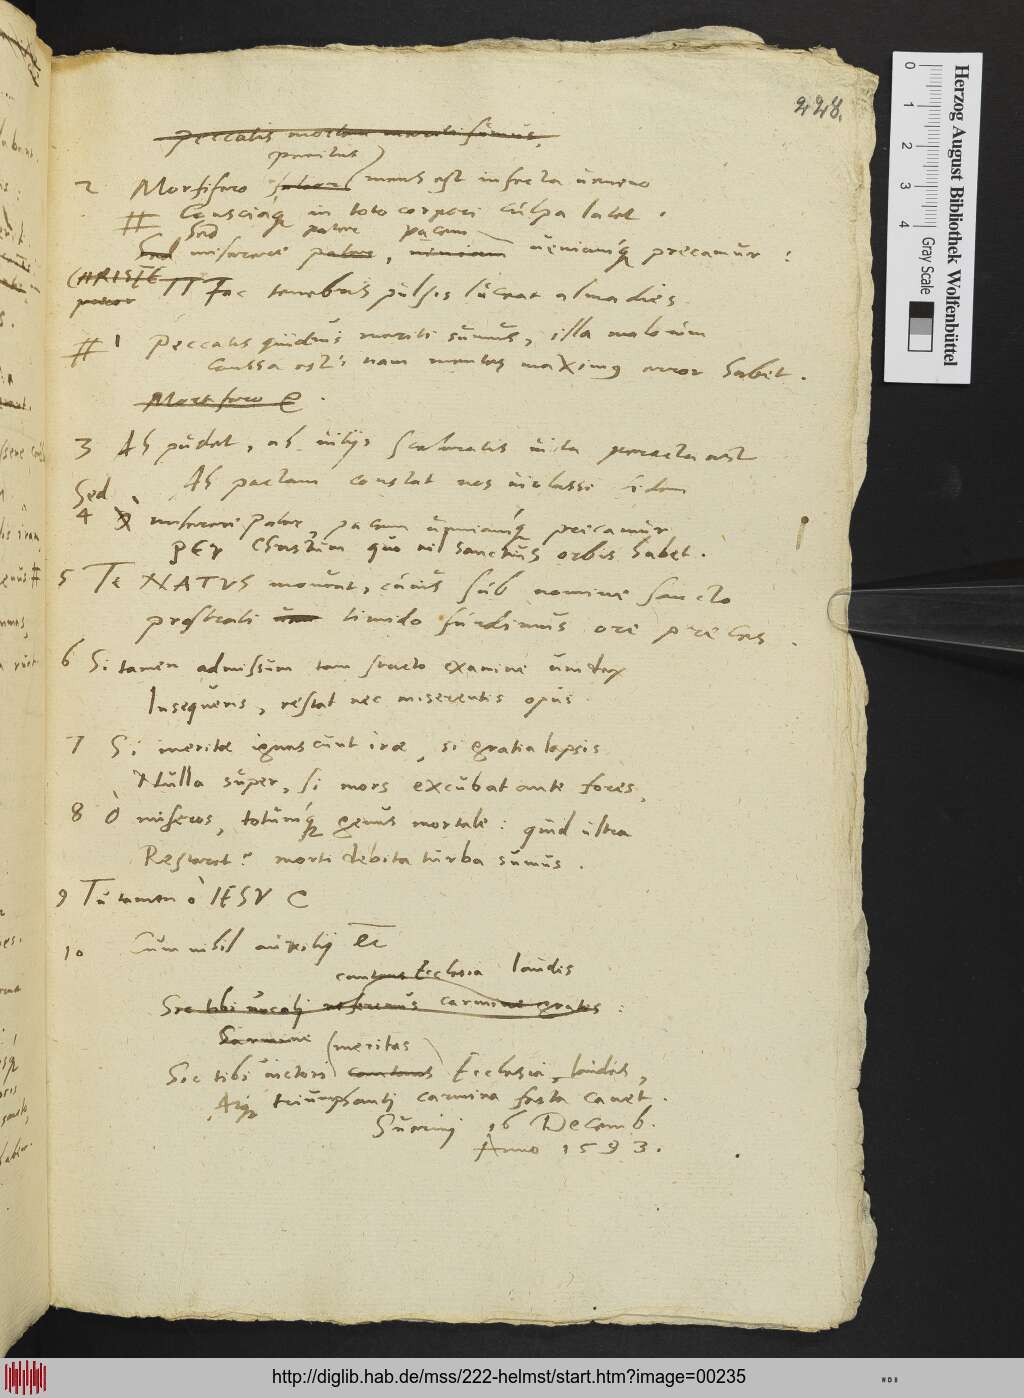 228.
Peccatis mortem meriti sumus,
penitus
2 Mortifero mens est infecta veneno
# Consciaque in toto corpore culpa latet.
Sed pater pacem
Sed miserere pater, veniamque precamur:
CHRISTE Fac tenebris pulsis luceat alma dies.
# 1 Peccatis quidvis meriti sumus, illa malorum
Caussa est: nam mentes maximus error habet.
Mortifero
3 Ah pudet, ah vitijs sceleratis vita peracta est
Ah pactam constat nos violasse fidem
Sed
4 miserere Pater, pacem veniamque precamur
PER Christum quo nil sanctius orbis habet.
5 Te NATUS moveat, cuius sub nomine sancto
prostrati timido fundimus ore preces.
6 Si tamen admissum tam stricto examine vindex
Insequeris, restat nec miserentis opus
7 Si meritae ignescunt irae, si gratia lapsis
Nulla super, si mors excubat ante fores,
8 O miseros, totumque genus mortale: quid ultra
Restaret? morti debita turba sumus.
9 Tu tamen ô IESV
10 Cum nihil auxilij etc
cantat Ecclesia laudis
Sic tibi referemus carmine grates:
Carmine
meritas
Sic tibi victori Ecclesia, laudes,
Atque triumphanti carmina festa canet.
16 Decemb.
Anno 1593.
Herzog August Bibliothek Wolfenbüttel
0 1 2 3 4 Gray Scale
http://diglib.hab.de/mss/222-helmst/start.htm?image=00235